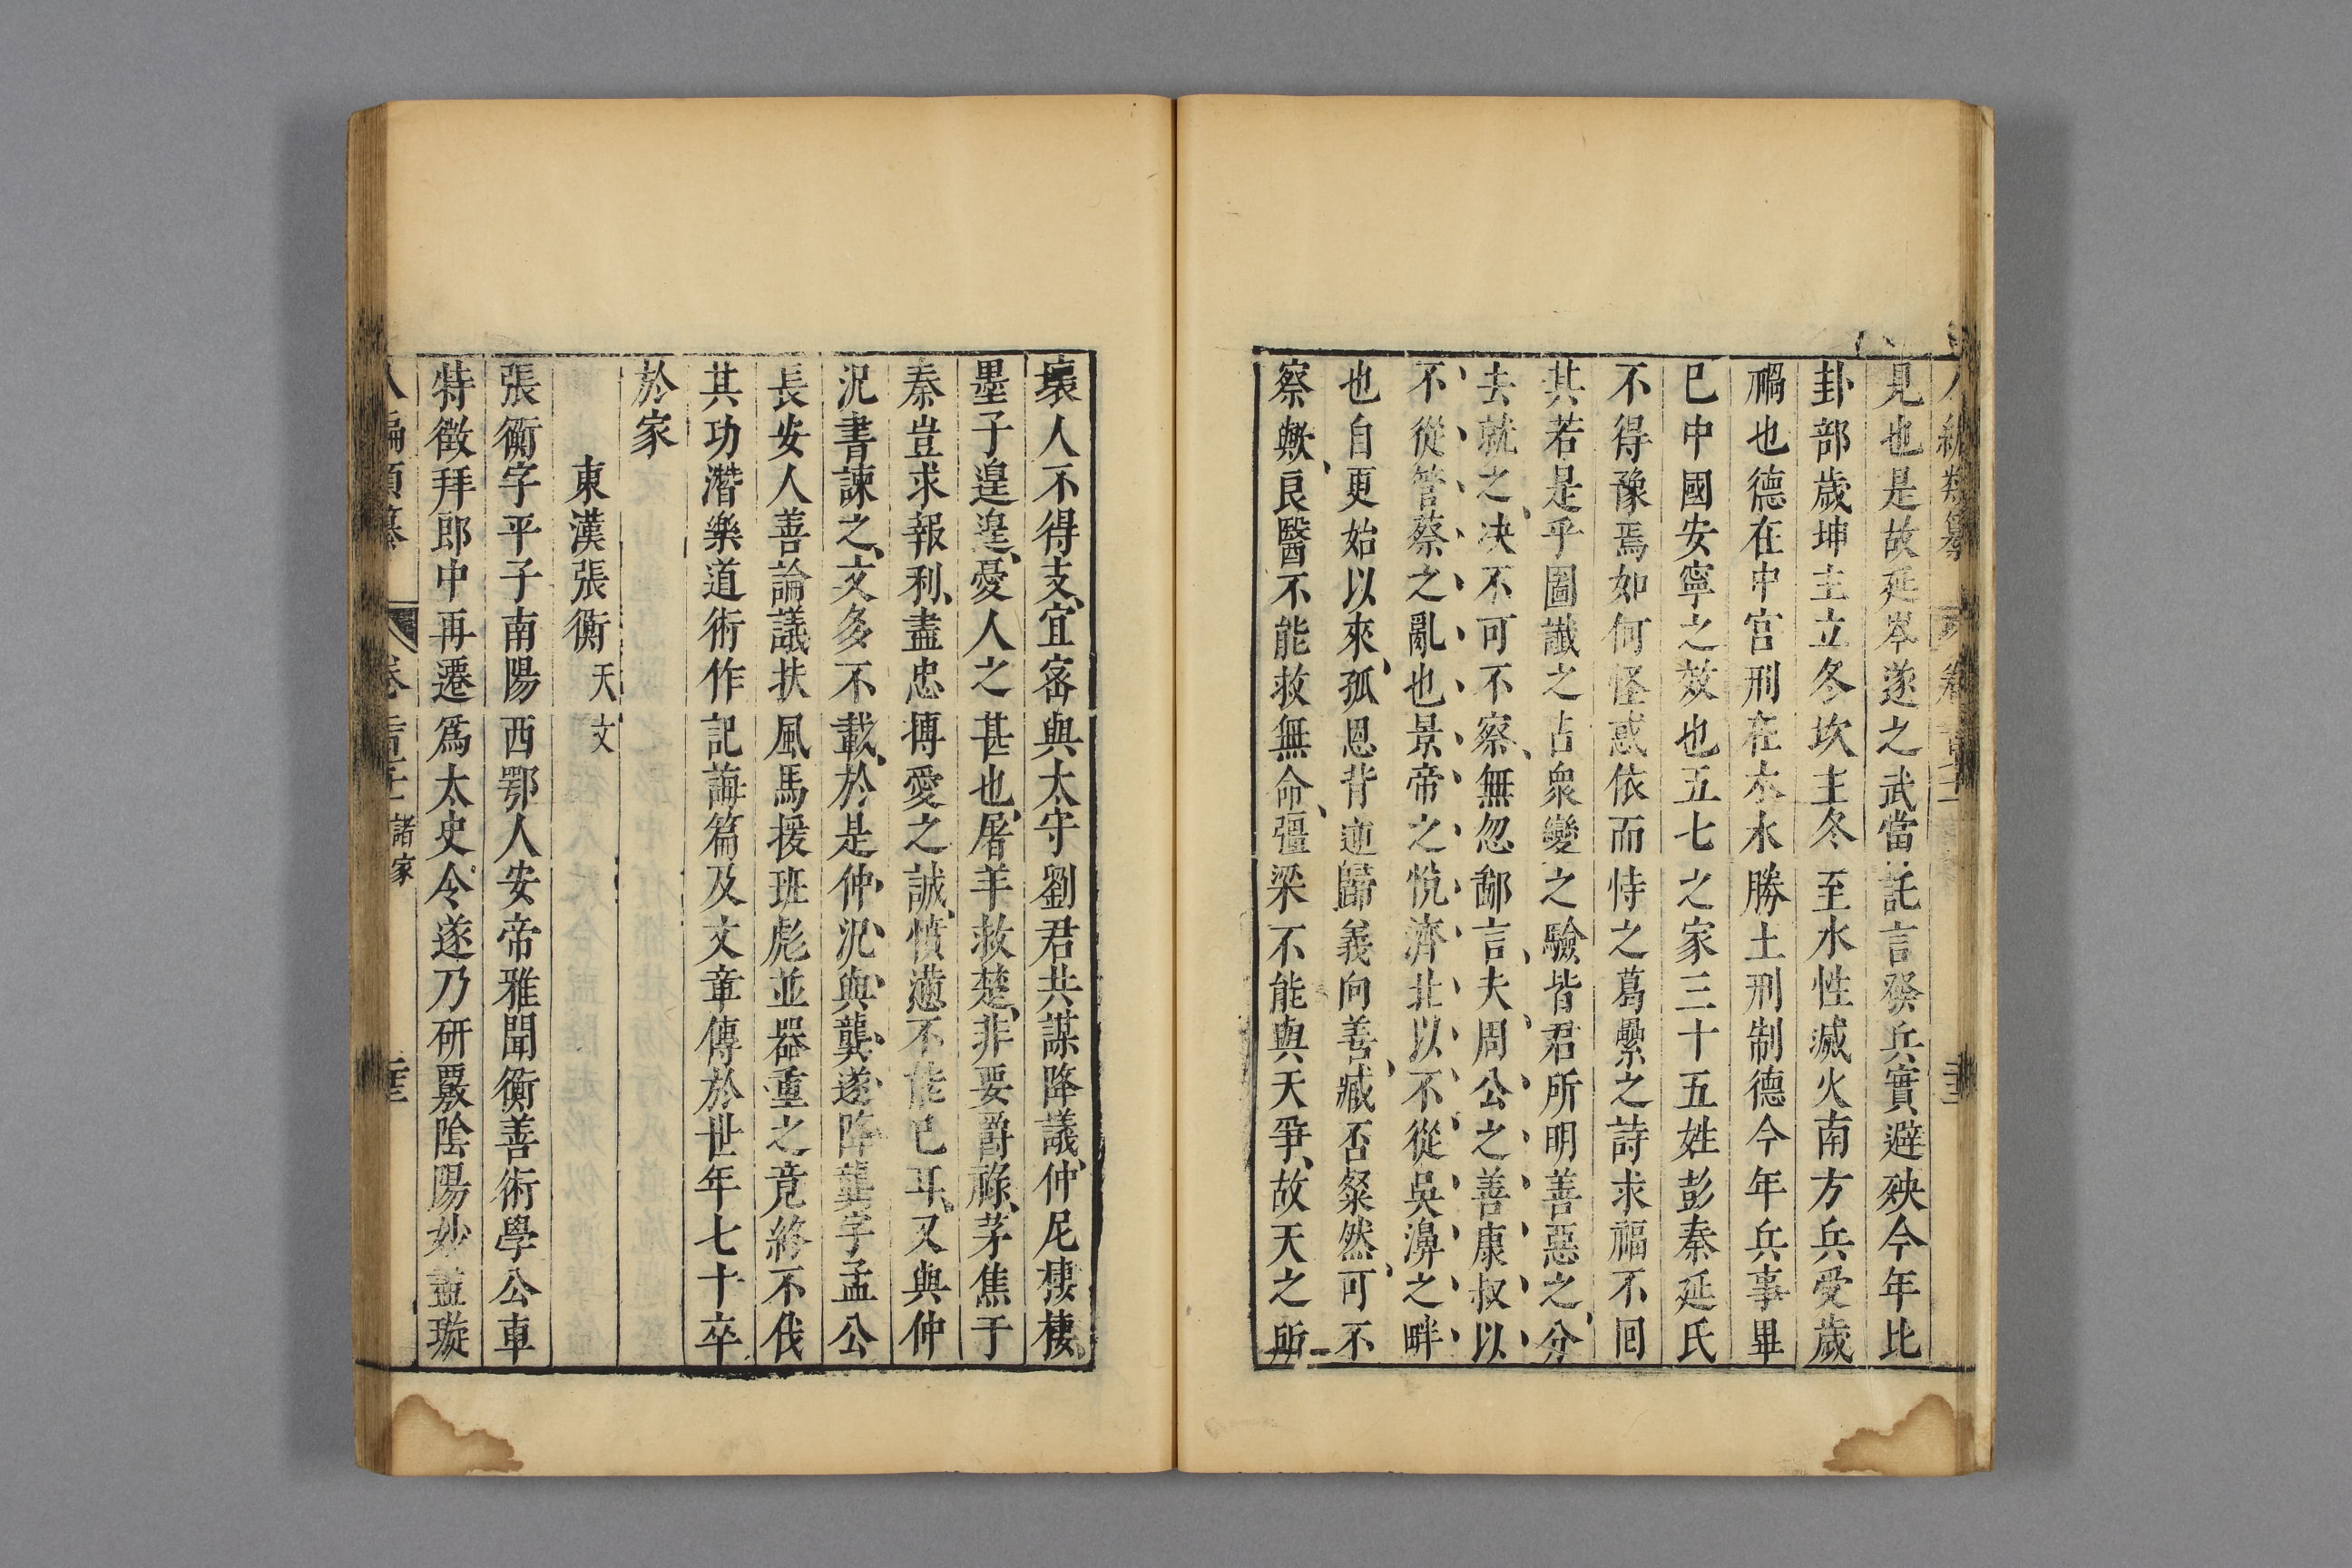 見也是故延岑遂之武當託言發兵實避殃今年比
卦部歲坤主立冬坎主冬至水性滅火南方兵受歲
禍也德在中宮刑在木水勝土刑制德今年兵事畢
已中國安寧之效也五七之家三十五姓彭秦延氏
不得豫焉如何怪惑依而恃之葛纍之詩求福不回
其若是乎圖讖之占衆變之驗皆君所明善惡之分
去就之决不可不察無忽鄙言夫周公之善康叔以
不從管蔡之亂也景帝之悅濟北以不從吳濞之畔
也自更始以來孤恩背逆歸義向善臧否粲然可不
察歟良醫不能救無命彊梁不能與天爭故天之所
壞人不得支宜密與太守劉君共謀降議仲尼棲棲
墨子遑遑憂人之甚也屠羊救楚非要爵祿茅焦于
秦豈求報利盡忠博愛之誠憤懣不能已耳又與仲
況書諫之文多不載於是仲況與龔遂降龔字孟公
長安人善論議扶風馬援班彪並器重之竟終不伐
其功潛樂道術作記誨篇及文章傳於世年七十卒
於家
東漢張衡 天文
張衡字平子南陽西鄂人安帝雅聞衡善術學公車
特徵拜郎中再遷爲太史令遂乃研覈陰陽妙盡璇
諸家